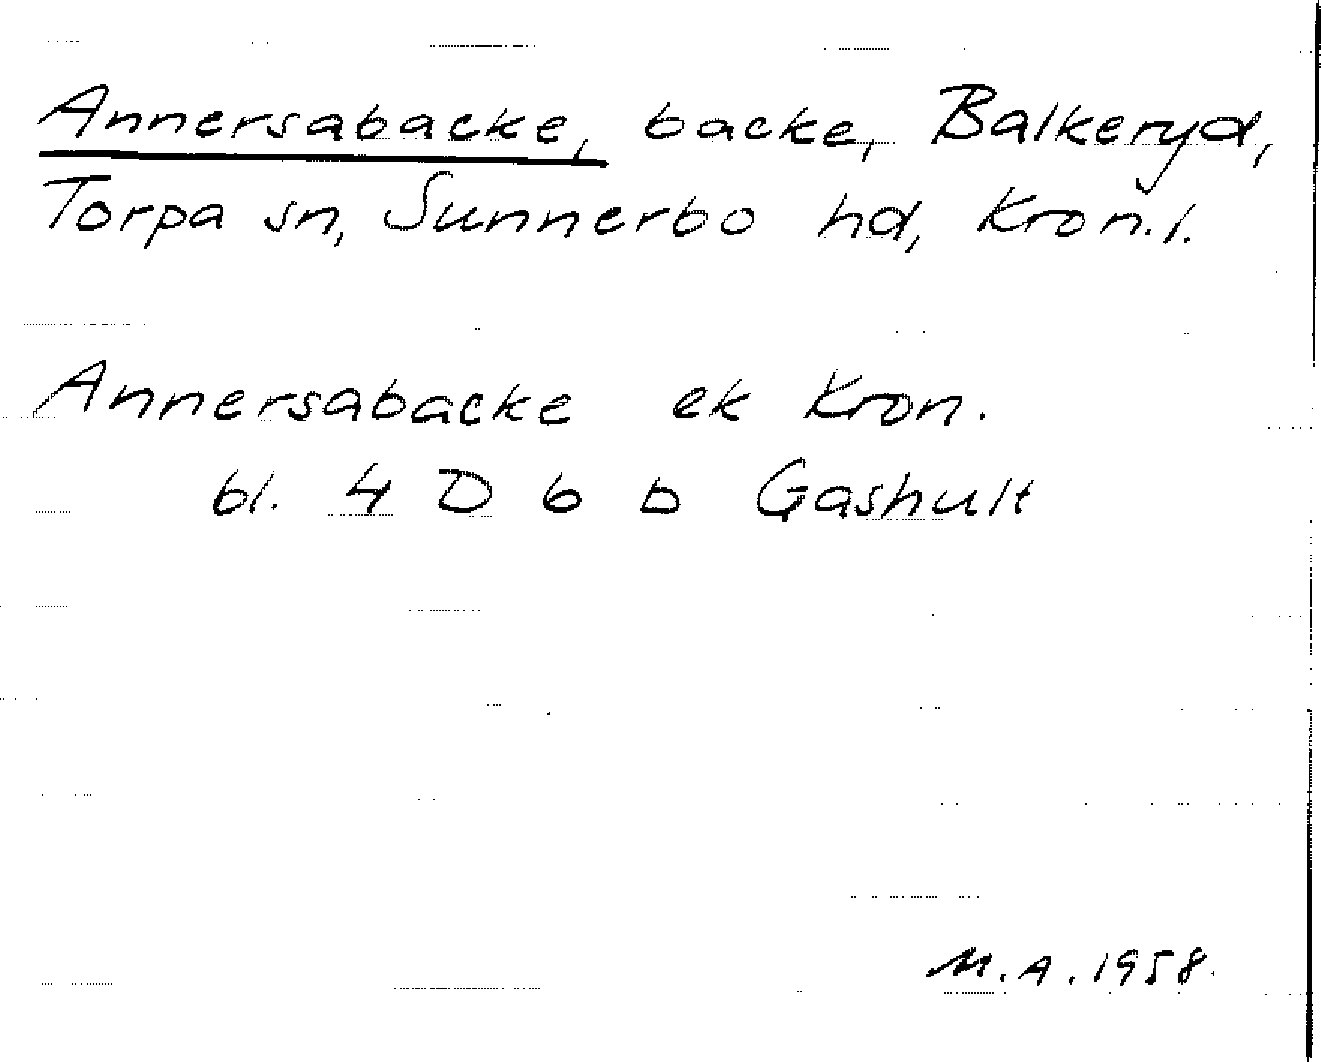 Annersabacke, backe, Balkeryd,
Torpa sn, Sunnerbo hd, Kron.l.
Annersabacke ek Kron.
bl. 4 D 6 b Gashult
M.A. 1958.